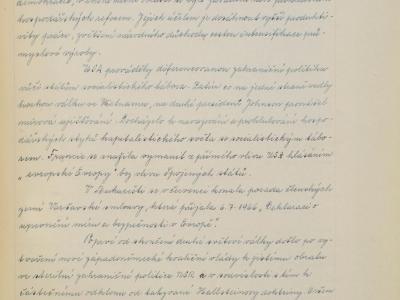 hospodářských reforem. Jejich účelem je dosáhnout vyšší produkti-
vity práce, zvýšení národního důchodu cestou intensifikace prů-
myslové výroby.
USA prováděly diferencovanou zahraniční politiku
vůči státům socialistického tábora. Zatím co na jedné straně vedly
krutou válku ve Vietnamu, na druhé president Johnson pronášel
mírová ujišťování. Docházelo k navazování a prohlubování hospo-
dářských styků kapitalistického světa se socialistickým tábo-
rem. Francie se snažila vymanit z přímého vlivu USA hlásáním
„evropské Evropy" bez vlivu Spojených států.
V Bukurešti se v červenci konala porada členských
zemí Varšavské smlouvy, která přijala 6.7.1966 „Deklaraci o
upevnění míru a bezpečnosti v Evropě".
Poprvé od skončení druhé světové války došlo po vy-
tvoření nové západoněmecké koaliční vlády k jistému obratu
ve strnulé zahraniční politice NSR a v souvislosti s tím k
částečnému odklonu od takzvané Hallsteinovy doktriny.